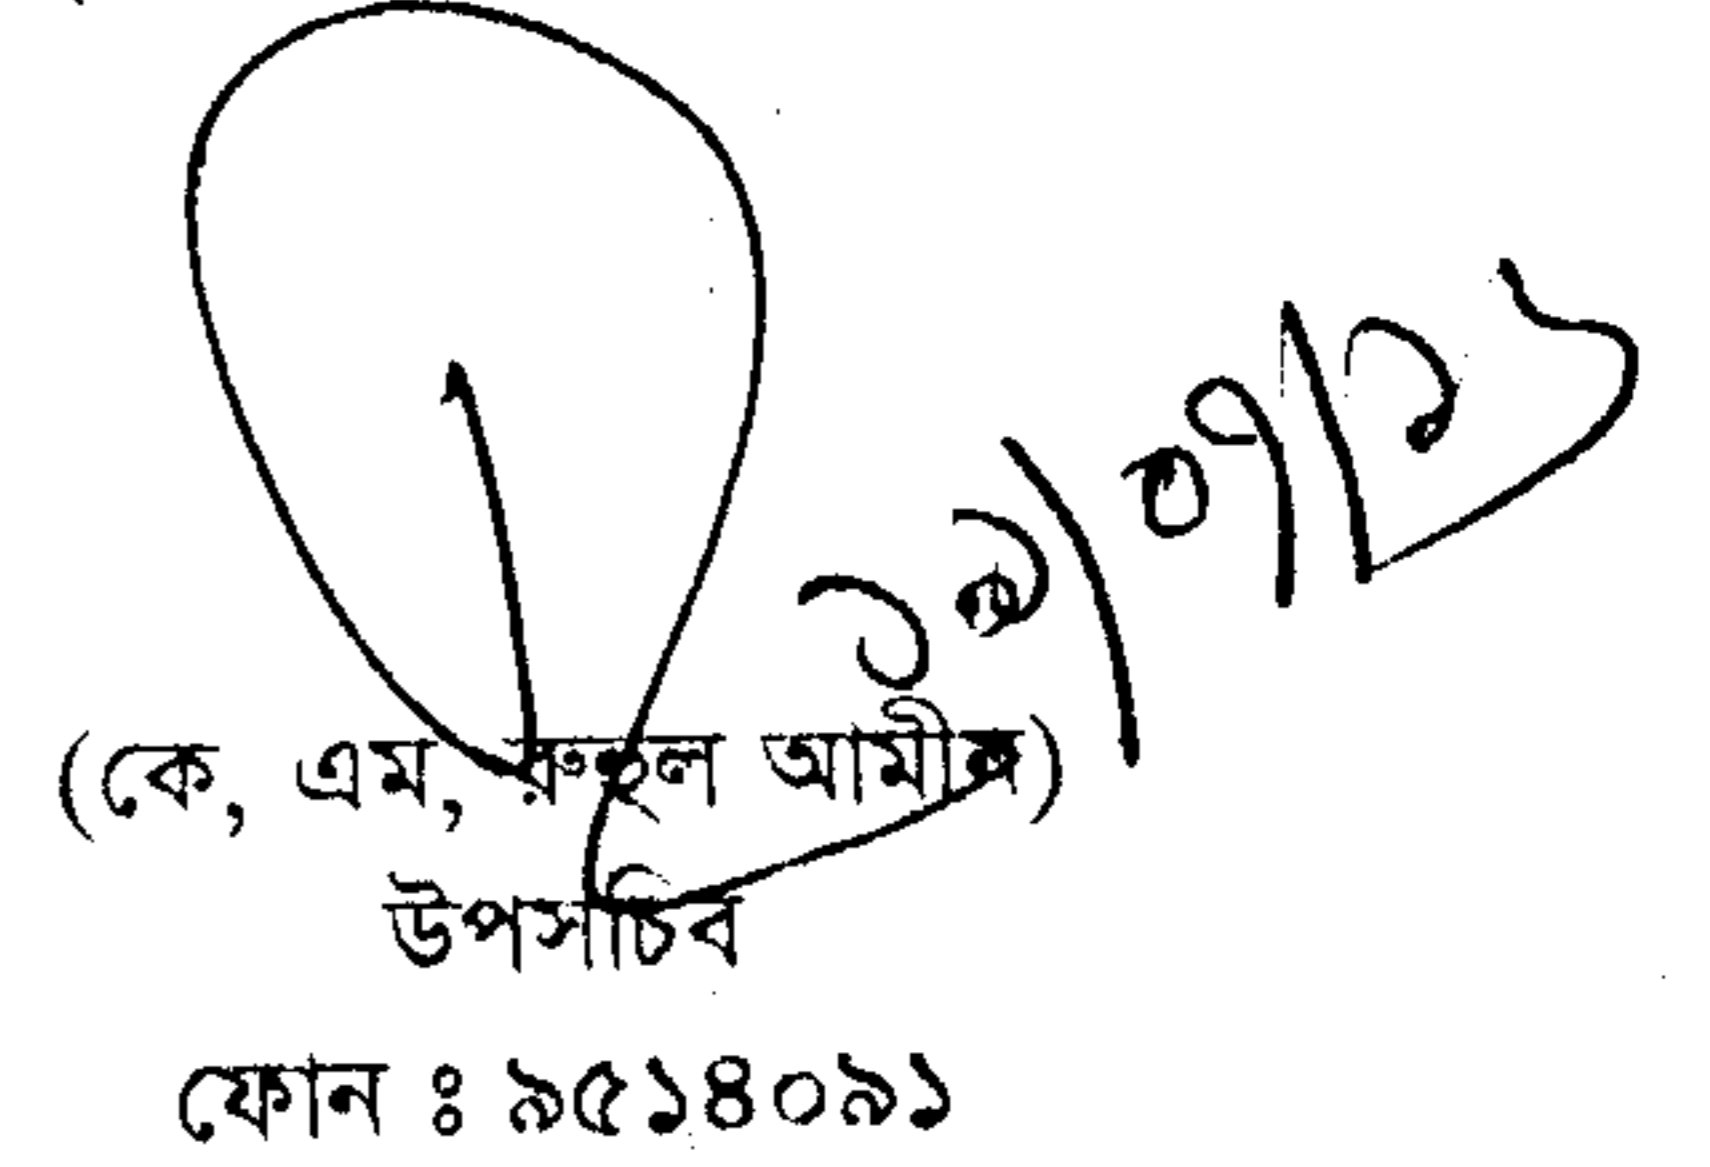 ১১/০৭/১২
(কে, এম, রুহুল আমীন)
উপসচিব
ফোন : ৯৫১৪০৯১